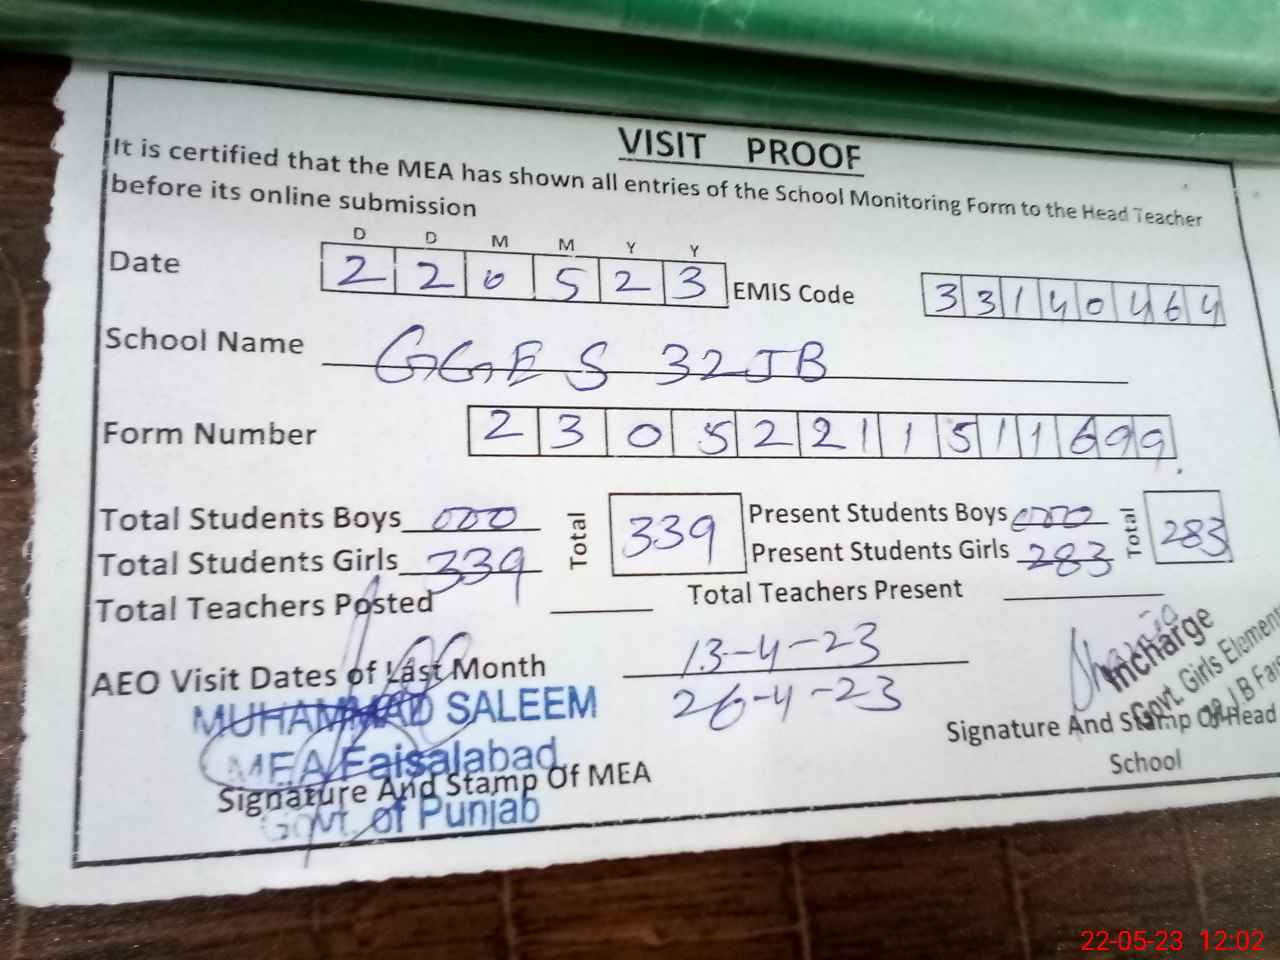 VISIT PROOF
It is certified that the MEA has shown all entries of the School Monitoring Form to the Head Teacher
before its online submission
D D M M Y Y
Date 2 2 0 5 2 3 EMIS Code 3 3 1 4 0 4 6 4
School Name GGES 32 JB
Form Number 2 3 0 5 2 2 1 1 5 1 1 6 9 9
Total Students Boys 000 Total 339 Present Students Boys 000 Total 283
Total Students Girls 339 Present Students Girls 283
Total Teachers Posted Total Teachers Present
AEO Visit Dates of Last Month 13-4-23
26-4-23
MUHAMMAD SALEEM
MEA Faisalabad
Govt. of Punjab
Signature And Stamp Of MEA
Incharge
Govt. Girls Element
J B Fai
Signature And Stamp Of Head
School
22-05-23 12:02